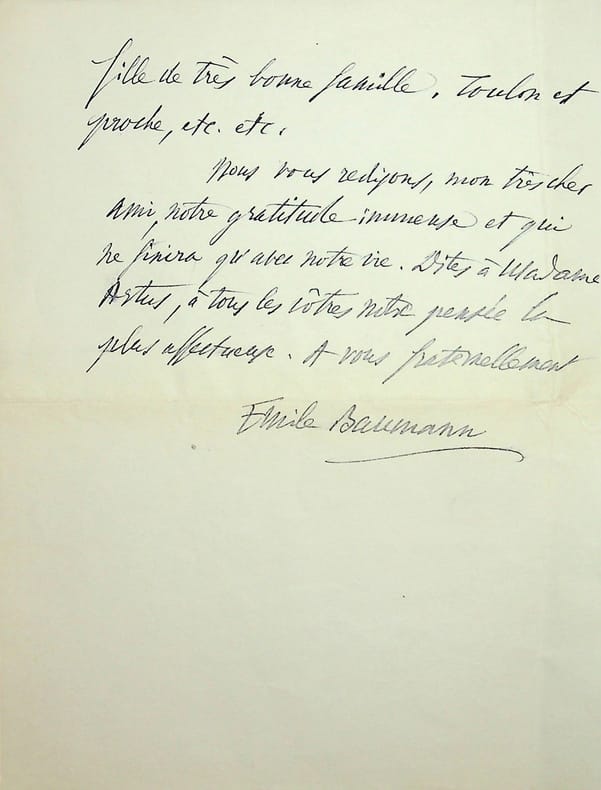 fille de très bonne famille. Toulon est
proche, etc. etc.
Nous vous redisons, mon très cher
ami, notre gratitude immense et qui
ne finira qu'avec notre vie. Dites à Madame
Artus, à tous les vôtres notre pensée la
plus affectueuse. A vous fraternellement
Emile Baumann